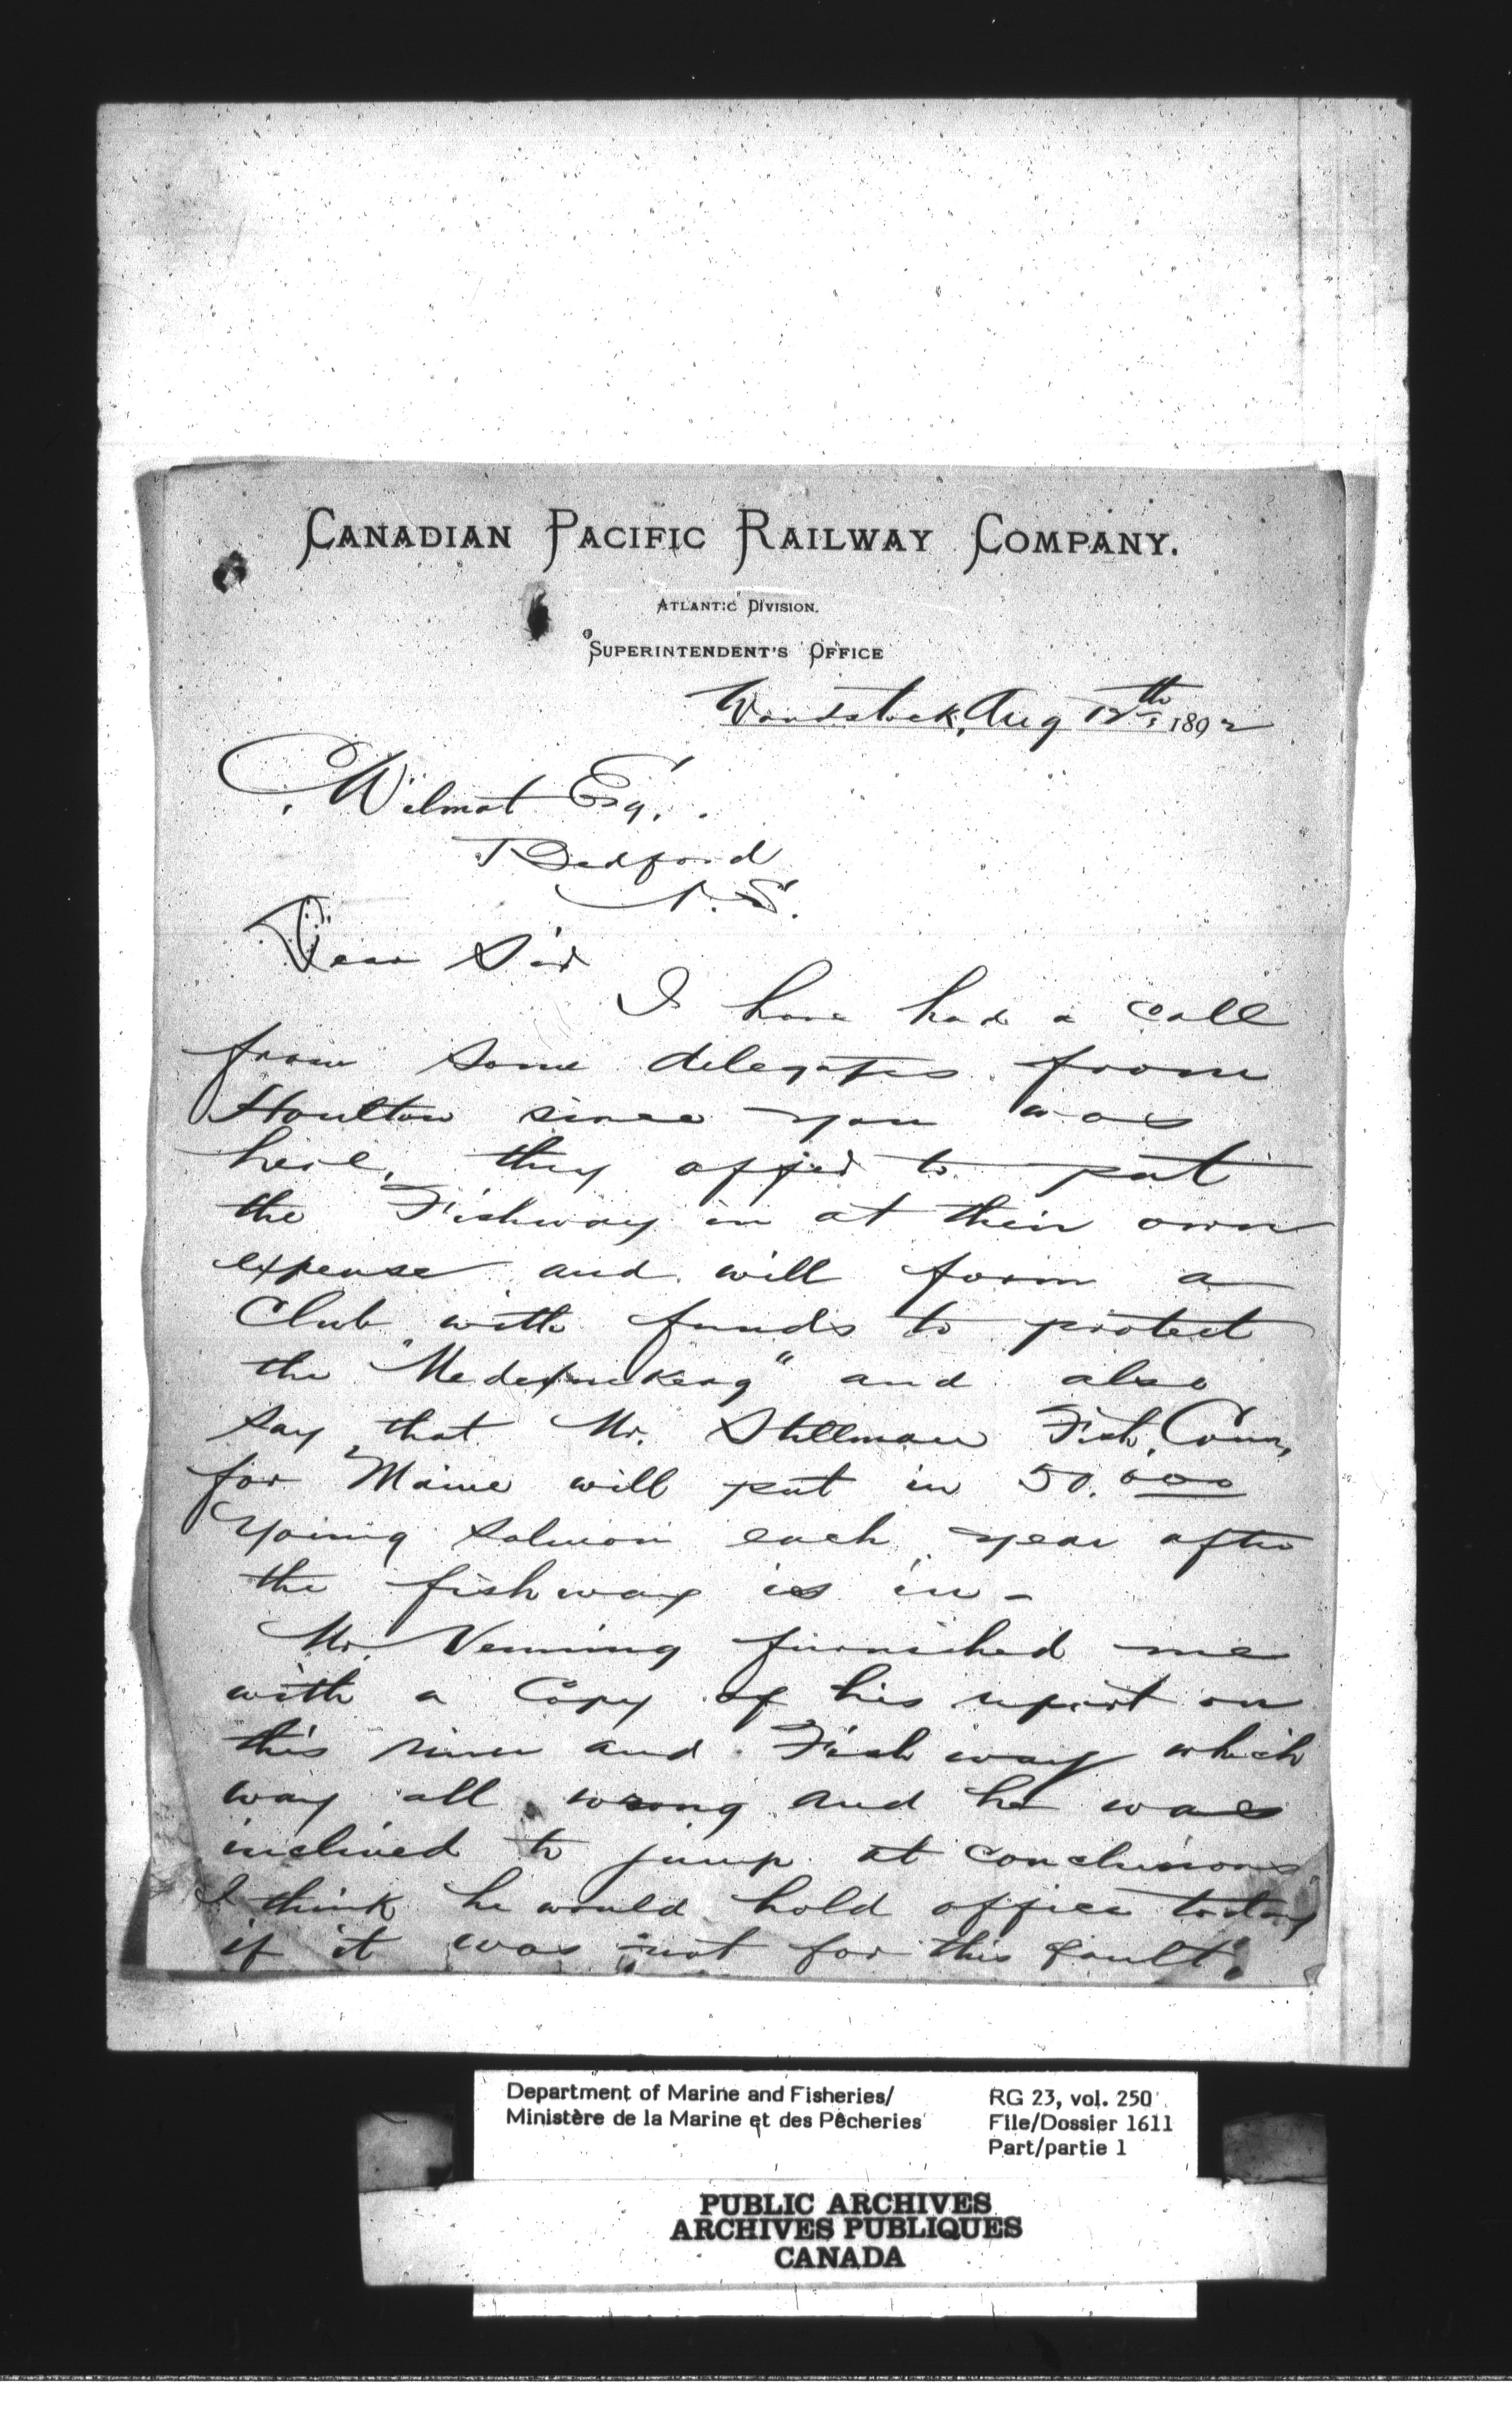 CANADIAN PACIFIC RAILWAY COMPANY.
ATLANTIC DIVISION.
SUPERINTENDENT'S OFFICE
Woodstock, Aug 12th, 1892
C. Wilmot Esq.
Bedford
N.S.
Dear Sir
I have had a call
from some delegates from
Houlton since you was
here, they offer to put
the Fishway in at their own
expense and will form a
Club with funds to protect
the "Meduxnekeag" and also
say that Mr. Stillman Fish. Com,
for Maine will put in 50.000
Young Salmon each year after
the fishway is in -
Mr. Venning furnished me
with a Copy of his report on
this river and Fish way which
way all wrong and he was
inclined to jump at conclusions
I think he would hold office today
if it was not for this fault.
Department of Marine and Fisheries/
Ministère de la Marine et des Pêcheries
RG 23, vol. 250
File/Dossier 1611
Part/partie 1
PUBLIC ARCHIVES
ARCHIVES PUBLIQUES
CANADA